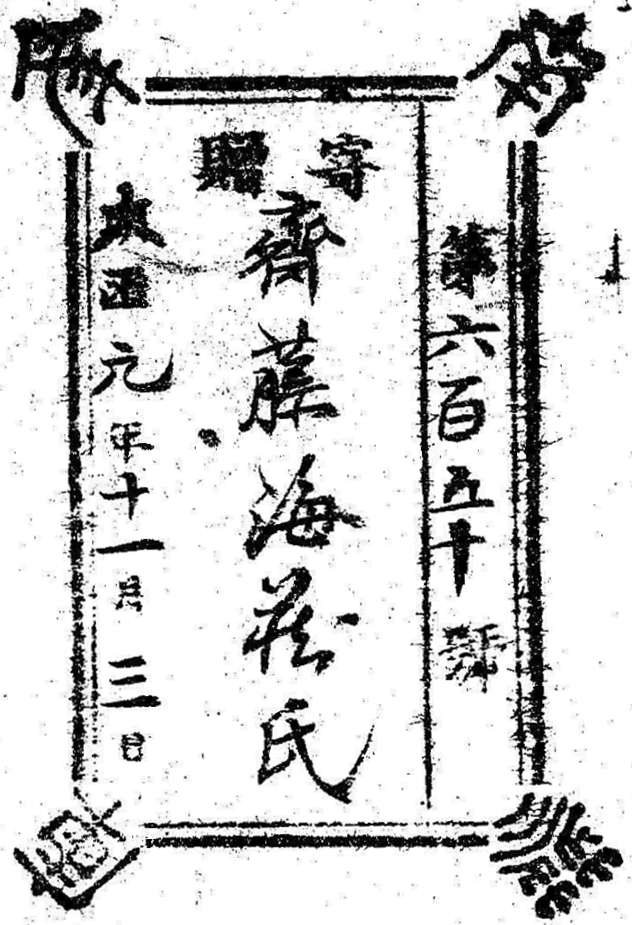 第六百五十號
寄贈
齊藤海蔵氏
大正元年十一月三日